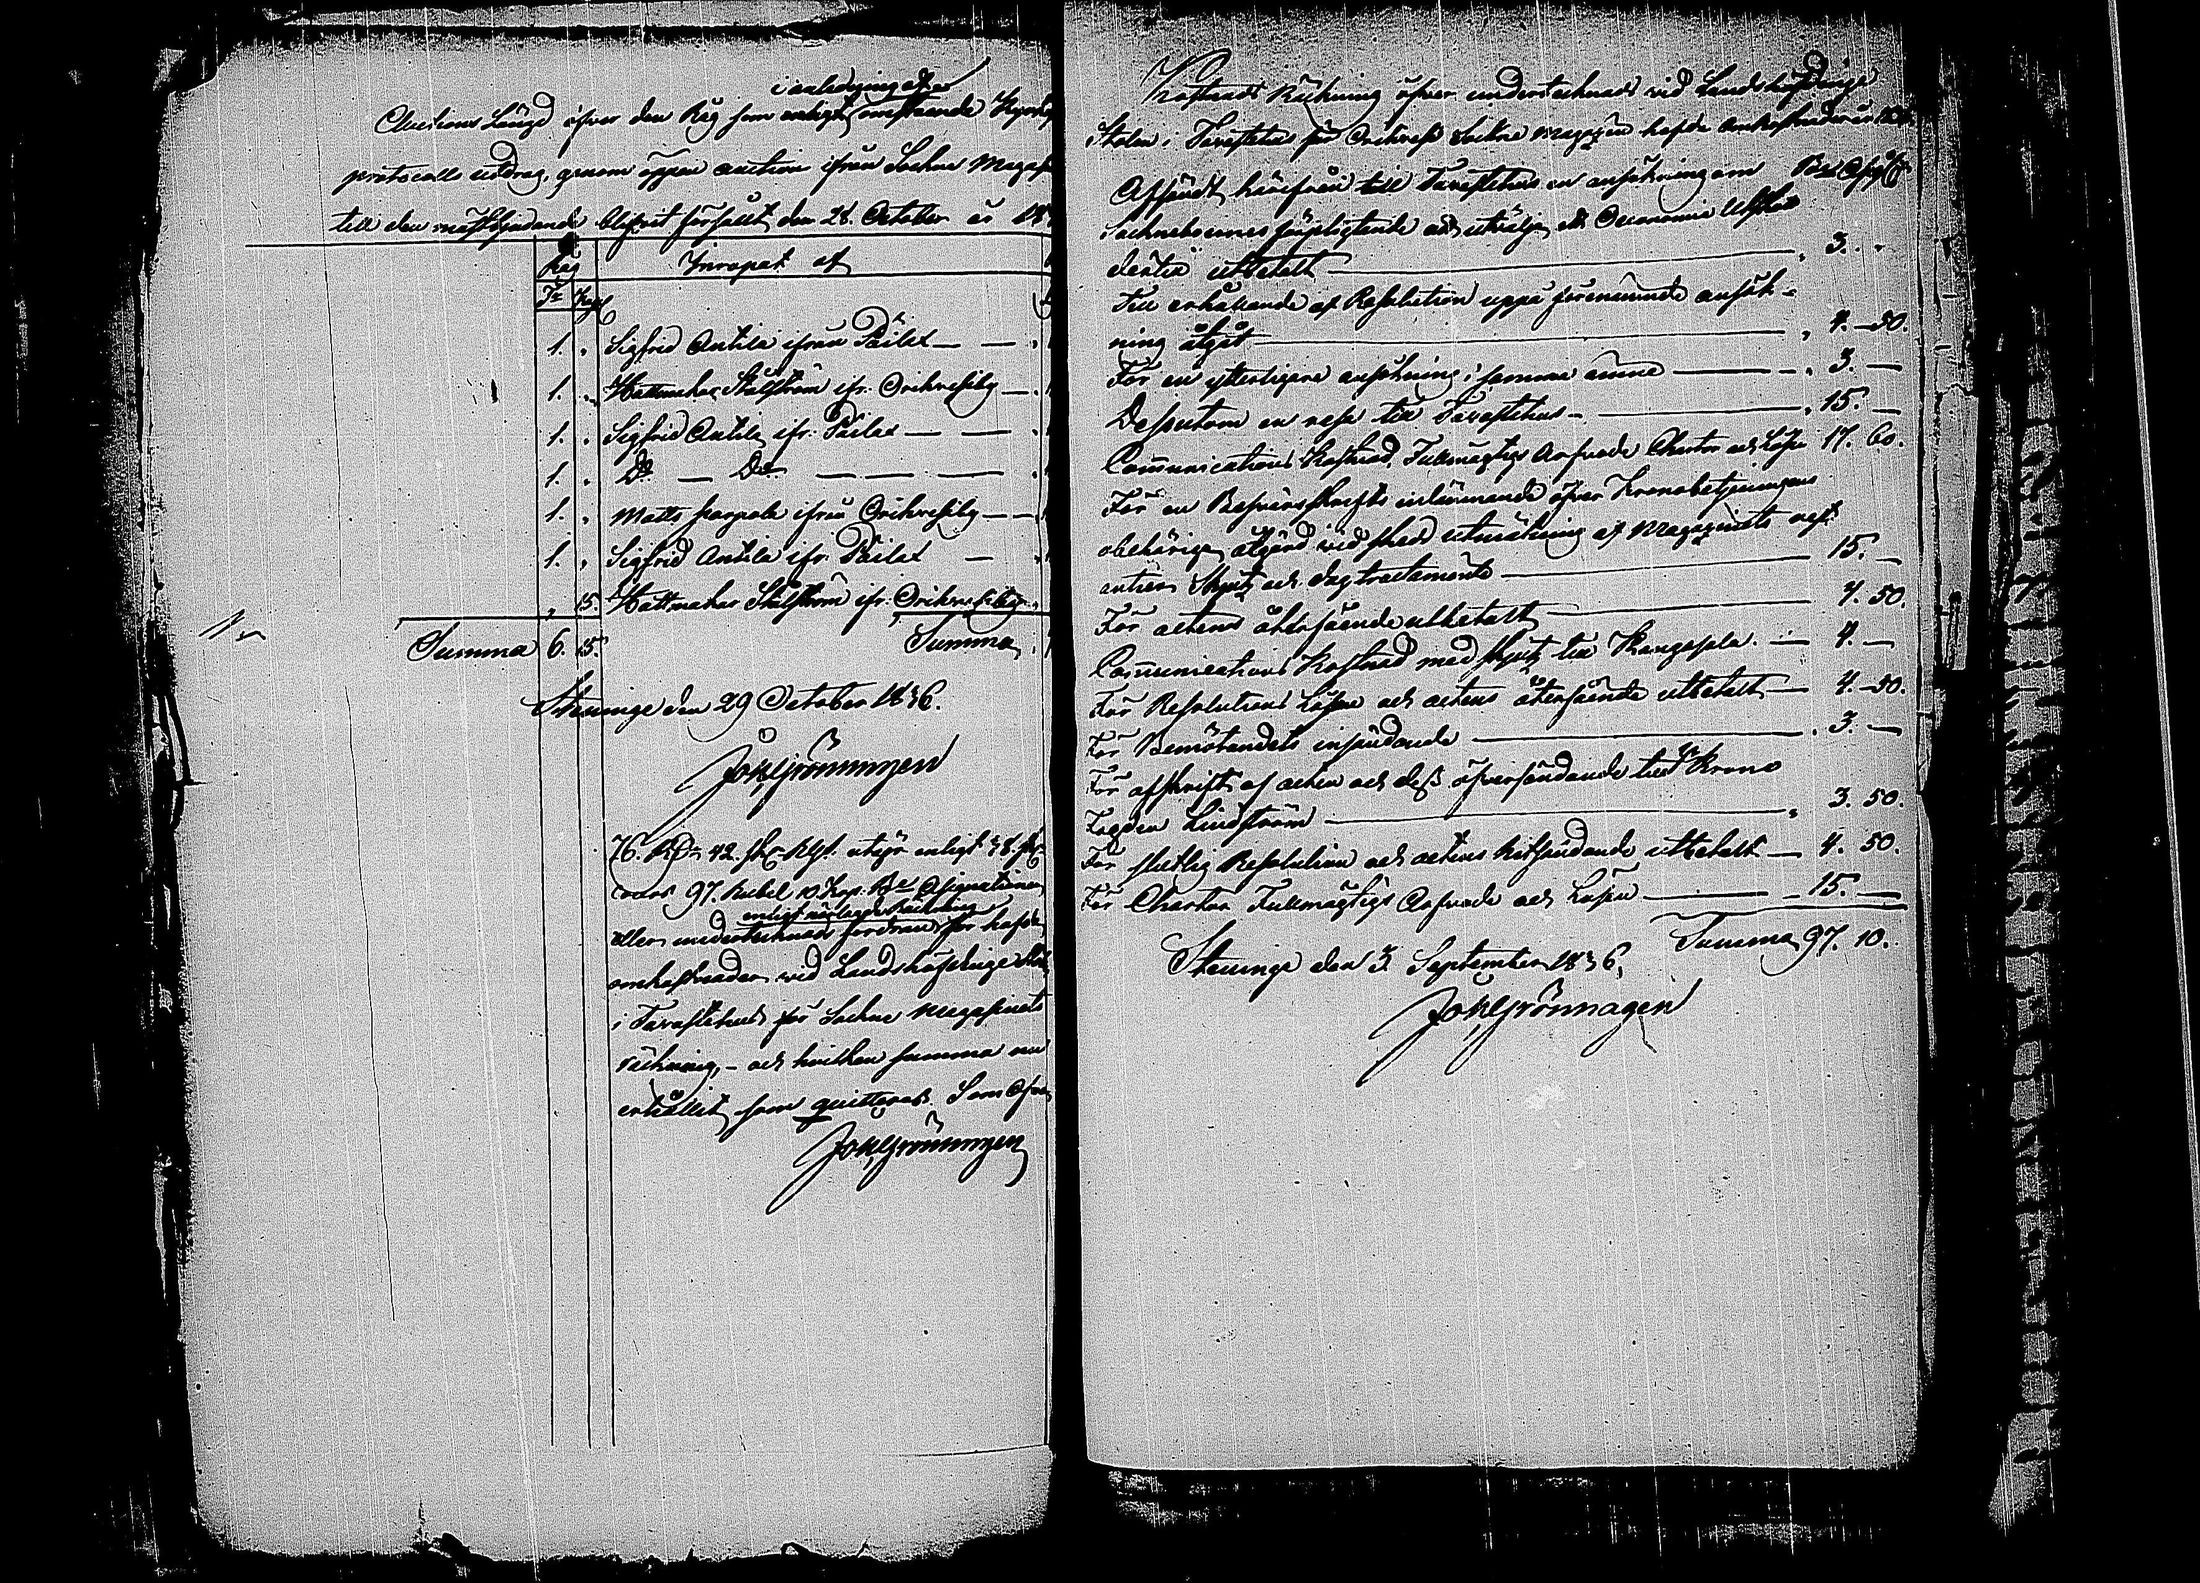 i anledning af
Auctions Längd öfver den Råg som enligt omstående
protocolls utdrag, genom öppen auction ifrån Sockne Magasi
till den mästbjudande blifvit försåldt den 28. October år 183
Råg Inropat af
Tr Kap
1. " Sigfrid Antila ifrån Päilax — —
1. " Hattmakar Stålström ifr. Orihvesiby —
1. " Sigfrid Antila ifr. Päilax — —
1. " Do — Do — — —
1. " Matts ifrån Orihvesiby — —
1. " Sigfrid Antila ifr. Päilax —
" 15. Hattmakar Stålström ifr. Orihvesiby
Summa 6. 15. Summa
Steninge den 29 October 1836.
Joh Grönhagen
76. RD 42. sk. Rgs. utgör enligt 38. sk.
97. Rubel 10 Kop. Bco Assignationer
enligt närlagde Räkning
eller undertecknads fordran för hafde
omkostnader vid Landshöfdinge
i Tavastehus för Sockne Magasinets
räkning, - och hvilken summa nu
erhållit som quitteras. Som ofvan
Joh Grönhagen
Kostnads Räkning öfver undertecknads vid Landshöfdinge
Stolen i Tavastehus för Orihvesi Sockne Magazin hafde omkostnader år
Afsändt härifrån till Tavastehus en ansökning om Bco Assig
Sockneboernes förpligtande att utvälja ett Oeconomie Utskott
dertill utbetalt — " 3. "
Till erhållande af Resolution uppå förenämnde ansök-
ning åtgåt — " 4. — 50.
För en ytterligare ansökning i samma ämne — " 3. —
Dessutom en resa till Tavastehus — " 15. —
Communications Kostnad, Fullmägtigs Arfvode Charta och Lösen 17. 60.
För en Besvärsskrifts inlämnande öfver Kronobetjeningens
obehöriga åtgärd vid skedd utmätning af Magazinets rest
antier Skjuts och dagtractamente — 15. —
För actens återsående utbetalt — 4. 50.
Communications Kostnad med skjuts till Kangasala — 4. —
För Resolutions Lösen och actens återsående utbetalt — 4. — 50.
För Bemötandets insändande — " 3. —
För afskrift af acten och dess öfversändande till Krono
Fogden Lindström — " 3. 50.
För slutlig Resolution och actens hitsändande utbetalt — 4. 50.
För Charta Fullmägtigs Arfvode och Lösen — 15. —
Summa 97. 10.
Steninge den 3 September 1836,
Joh Grönhagen